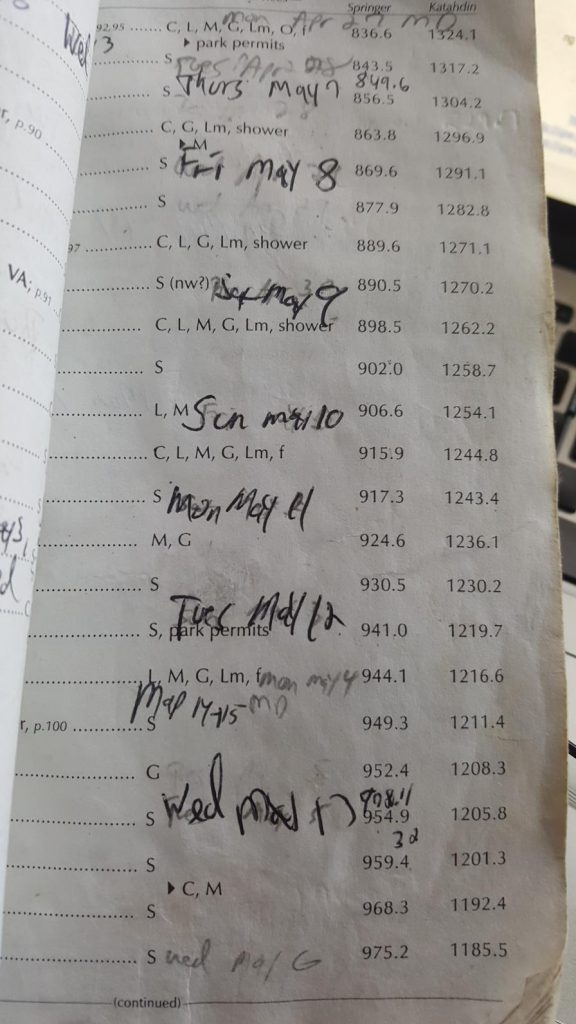 Springer Katahdin
92,95 ...... C, L, M, G, Lm, O, f 836.6 1324.1
Mon Apr 27 MD
Wed
3
▸ park permits
S 843.5 1317.2
Thurs May 7 849.6
S 856.5 1304.2
r, p.90 ...... C, G, Lm, shower 863.8 1296.9
▸ M
S Fri May 8 869.6 1291.1
S 877.9 1282.8
97 ...... C, L, G, Lm, shower 889.6 1271.1
VA; p.91 ...... S (nw?) Sat May 9 890.5 1270.2
C, L, M, G, Lm, shower 898.5 1262.2
S 902.0 1258.7
L, M Sun May 10 906.6 1254.1
C, L, M, G, Lm, f 915.9 1244.8
S Mon May 11 917.3 1243.4
M, G 924.6 1236.1
S 930.5 1230.2
Tues May 12
S, park permits 941.0 1219.7
L, M, G, Lm, f Mon May 4 944.1 1216.6
Map 14+15 MD
r, p.100 ...... S 949.3 1211.4
G 952.4 1208.3
S Wed May 13 954.9 1205.8
32
S 959.4 1201.3
▸ C, M
S 968.3 1192.4
S Wed May 6 975.2 1185.5
(continued)